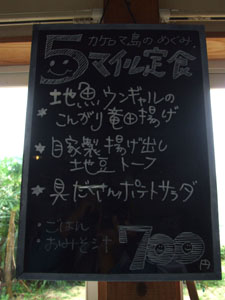 カケロマ島のめぐみ
5マイル定食
★地魚ウンギャルの
こんがり竜田揚げ
★自家製揚げ出し
地豆トーフ
★具だくさんポテトサラダ
・ごはん
・おみそ汁
700円